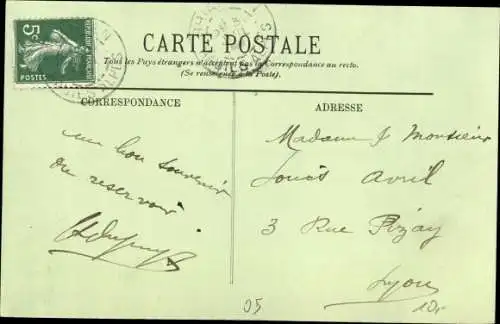 5c
POSTES
CARTE POSTALE
Tous les Pays étrangers n'acceptent pas la Correspondance au recto.
(Se renseigner à la Poste).
CORRESPONDANCE
ADRESSE
un bon souvenir
du reservoir
Madame Monsieur
Louis Avril
3 Rue Pizay
Lyon
05